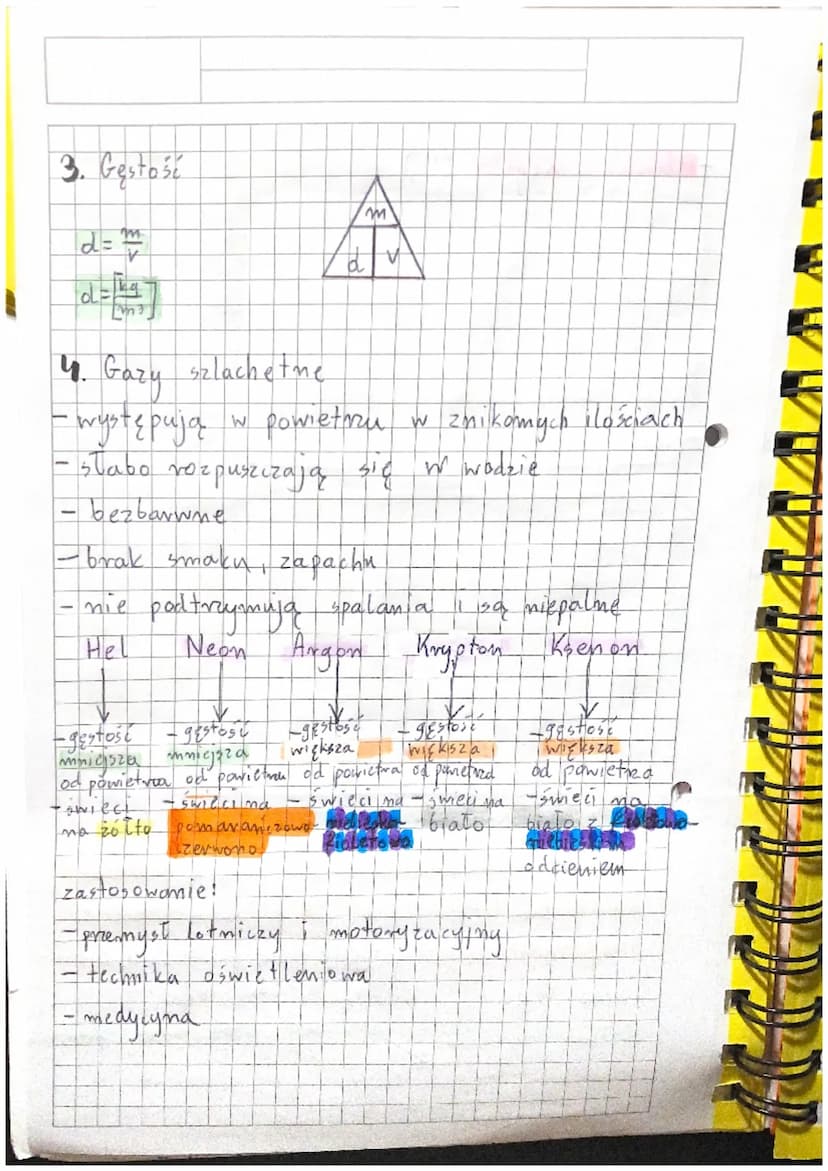 3. Gęstość
m
d V
d = m/v
d = [kg/m³]
4. Gazy szlachetne
- występują w powietrzu w znikomych ilościach
- słabo rozpuszczają się w wodzie
- bezbarwne
- brak smaku, zapachu
- nie podtrzymują spalania i są niepalne
Hel Neon Argon Krypton Ksenon
- gęstość - gęstość - gęstość - gęstość - gęstość
mniejsza mniejsza większa większa większa
od powietrza od powietrza od powietrza od powietrza od powietrza
- świeci - świeci na - świeci na - świeci na - świeci na
na żółto pomarańczowo- niebiesko- biało biało z fioletowo-
czerwono fioletowo niebieskim
odcieniem
zastosowanie:
- przemysł lotniczy i motoryzacyjny
- technika oświetleniowa
- medycyna